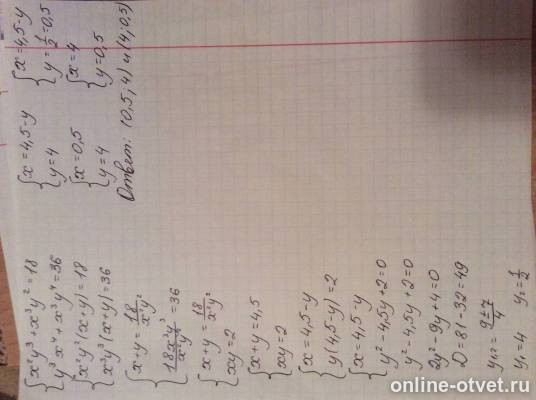 {x²y³ + x³y² = 18
{y³x⁴ + x³y⁴ = 36
{x²y²(x+y) = 18
{x³y³(x+y) = 36
{x+y = 18/x²y²
{18x³y³/x²y² = 36
{x+y = 18/x²y²
{xy = 2
{x+y = 4,5
{xy = 2
{x = 4,5-y
{y(4,5-y) = 2
{x = 4,5-y
{y² - 4,5y + 2 = 0
y² - 4,5y + 2 = 0
2y² - 9y + 4 = 0
D = 81 - 32 = 49
y₁,₂ = 9±7/4
y₁ = 4 y₂ = 1/2
{x = 4,5-y
{y = 4
{x = 0,5
{y = 4
{x = 4,5-y
{y = 1/2 = 0,5
{x = 4
{y = 0,5
Ответ: (0,5; 4) и (4; 0,5)
online-otvet.ru